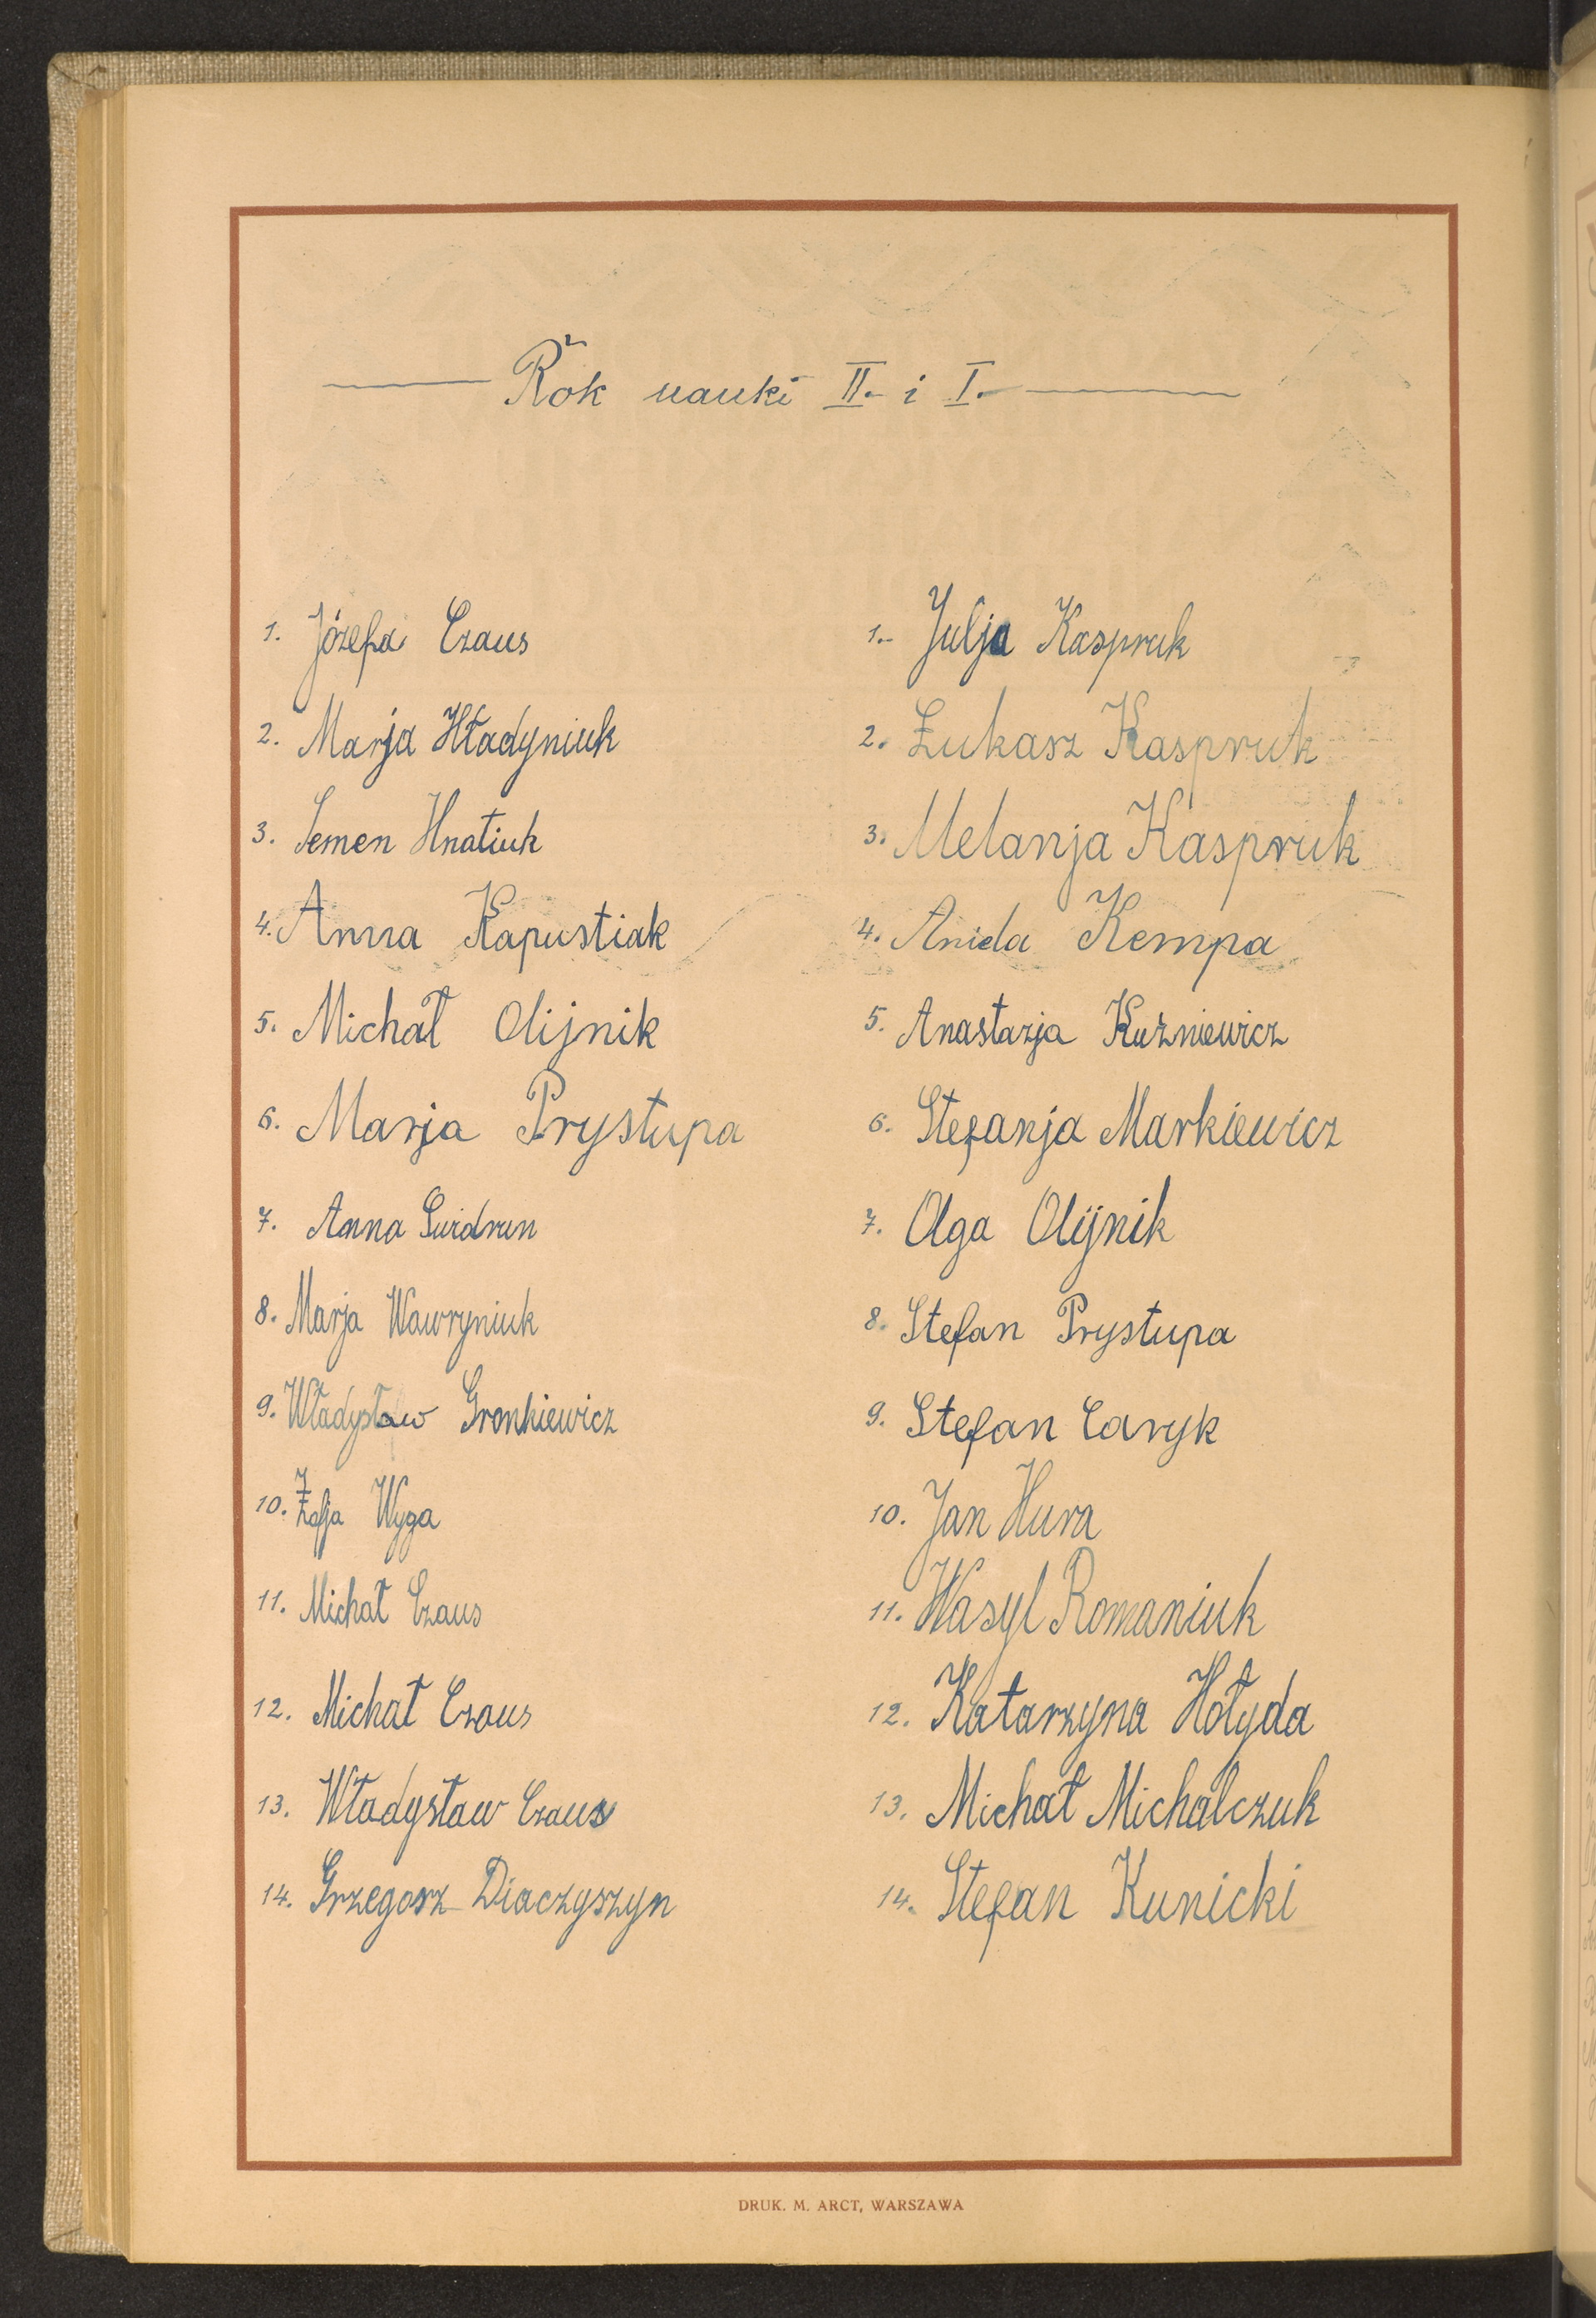 Rok nauki II. i I.
1. Józefa Czaus
2. Marja Hładyniuk
3. Semen Hnatiuk
4. Anna Kapustiak
5. Michał Olijnik
6. Marja Prystupa
7. Anna
8. Marja Wawryniuk
9. Władysław Gronkiewicz
10. Zofja Wyga
11. Michał Czaus
12. Michał Czaus
13. Władysław Czaus
14. Grzegorz Diaczyszyn
1. Julja Kaspruk
2. Łukasz Kaspruk
3. Melanja Kaspruk
4. Aniela Kempa
5. Anastazja Kuźniewicz
6. Stefanja Markiewicz
7. Olga Olijnik
8. Stefan Prystupa
9. Stefan Caryk
10. Jan Hura
11. Wasyl Romaniuk
12. Katarzyna Hołyda
13. Michał Michalczuk
14. Stefan Kunicki
DRUK. M. ARCT, WARSZAWA